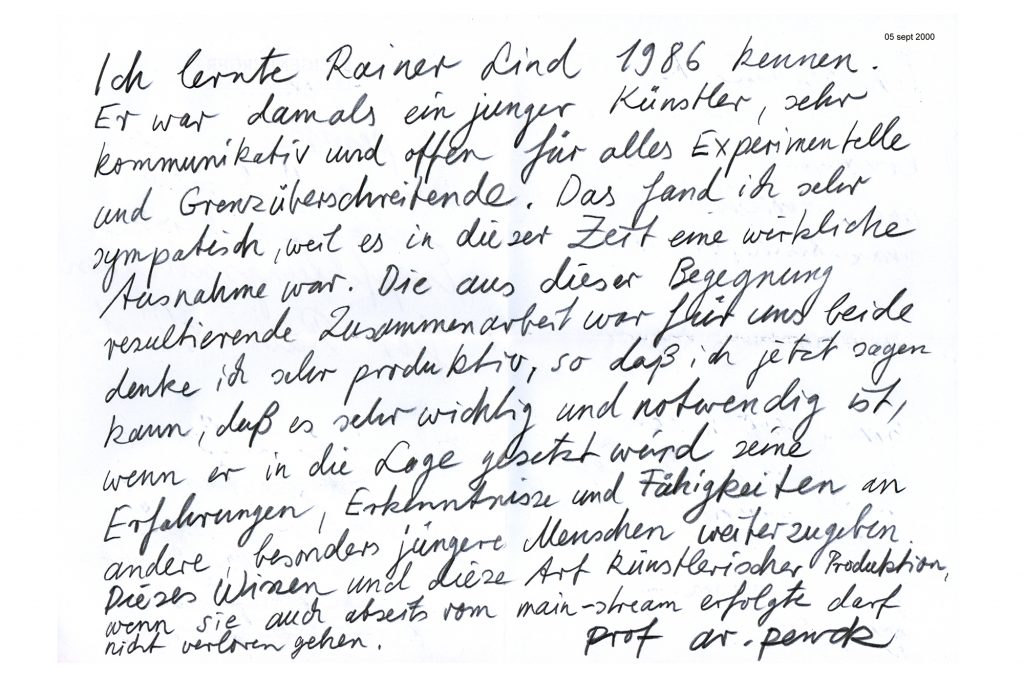 05 sept 2000
Ich lernte Rainer Lind 1986 kennen.
Er war damals ein junger Künstler, sehr
kommunikativ und offen für alles Experimentelle
und Grenzüberschreitende. Das fand ich sehr
sympatisch, weil es in dieser Zeit eine wirkliche
Ausnahme war. Die aus dieser Begegnung
resultierende Zusammenarbeit war für uns beide
denke ich sehr produktiv, so daß ich jetzt sagen
kann, daß es sehr wichtig und notwendig ist,
wenn er in die Lage gesetzt würd seine
Erfahrungen, Erkenntnisse und Fähigkeiten an
andere, besonders jüngere Menschen weiterzugeben.
Dieses Wissen und diese Art künstlerischer Produktion,
wenn sie auch abseits vom main-stream erfolgte darf
nicht verloren gehen.
prof ar. penck